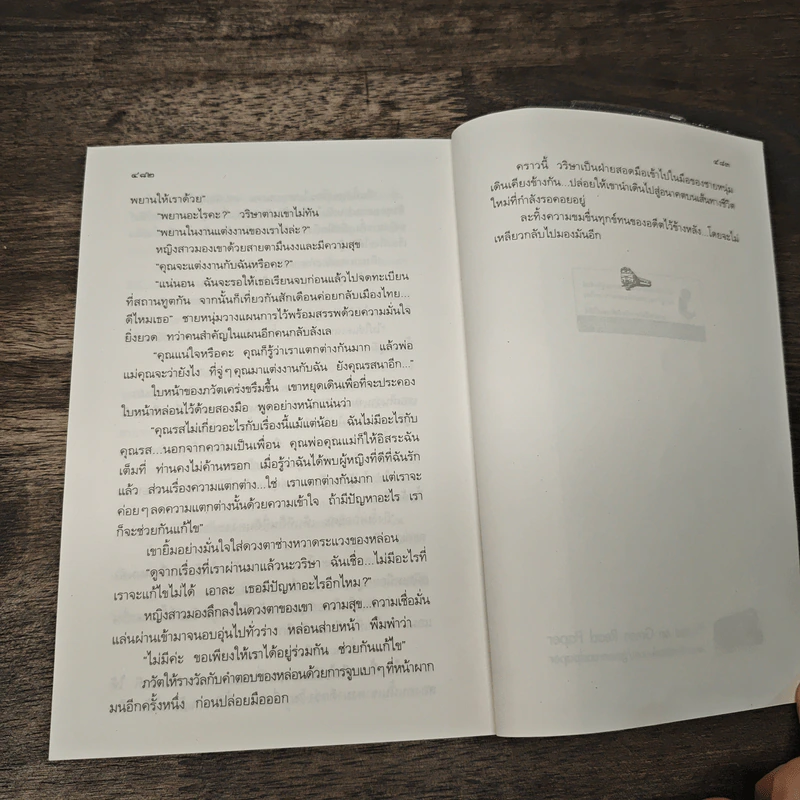 ๔๘๒
พยานให้เราด้วย"
"พยานอะไรคะ?" วริษาตามเขาไม่ทัน
"พยานในงานแต่งงานของเราไงล่ะ?"
หญิงสาวมองเขาด้วยสายตามึนงงและมีความสุข
"คุณจะแต่งงานกับฉันหรือคะ?"
"แน่นอน ฉันจะรอให้เธอเรียนจบก่อนแล้วไปจดทะเบียน
ที่สถานทูตกัน จากนั้นก็เที่ยวกันสักเดือนค่อยกลับเมืองไทย...
ดีไหมเธอ" ชายหนุ่มวางแผนการไว้พร้อมสรรพด้วยความมั่นใจ
ยิ่งยวด ทว่าคนสำคัญในแผนอีกคนกลับลังเล
"คุณแน่ใจหรือคะ คุณก็รู้ว่าเราแตกต่างกันมาก แล้วพ่อ
แม่คุณจะว่ายังไง ที่จู่ๆคุณมาแต่งงานกับฉัน ยังคุณรสนาอีก..."
ใบหน้าของภวัตเคร่งขรึมขึ้น เขาหยุดเดินเพื่อที่จะประคอง
ใบหน้าหล่อนไว้ด้วยสองมือ พูดอย่างหนักแน่นว่า
"คุณรสไม่เกี่ยวอะไรกับเรื่องนี้แม้แต่น้อย ฉันไม่มีอะไรกับ
คุณรส...นอกจากความเป็นเพื่อน คุณพ่อคุณแม่ก็ให้อิสระฉัน
เต็มที่ ท่านคงไม่ค้านหรอก เมื่อรู้ว่าฉันได้พบผู้หญิงที่ดีที่ฉันรัก
แล้ว ส่วนเรื่องความแตกต่าง...ใช่ เราแตกต่างกันมาก แต่เราจะ
ค่อยๆลดความแตกต่างนั้นด้วยความเข้าใจ ถ้ามีปัญหาอะไร เรา
ก็จะช่วยกันแก้ไข"
เขายิ้มอย่างมั่นใจใส่ดวงตาช่างหวาดระแวงของหล่อน
"ดูจากเรื่องที่เราผ่านมาแล้วนะวริษา ฉันเชื่อ...ไม่มีอะไรที่
เราจะแก้ไขไม่ได้ เอาละ เธอมีปัญหาอะไรอีกไหม?"
หญิงสาวมองลึกลงในดวงตาของเขา ความสุข...ความเชื่อมั่น
แล่นผ่านเข้ามาจนอบอุ่นไปทั่วร่าง หล่อนส่ายหน้า พึมพำว่า
"ไม่มีค่ะ ขอเพียงให้เราได้อยู่ร่วมกัน ช่วยกันแก้ไข"
ภวัตให้รางวัลกับคำตอบของหล่อนด้วยการจูบเบาๆที่หน้าผาก
มนอีกครั้งหนึ่ง ก่อนปล่อยมือออก
๔๘๓
คราวนี้ วริษาเป็นฝ่ายสอดมือเข้าไปในมือของชายหนุ่ม
เดินเคียงข้างกัน...ปล่อยให้เขานำเดินไปสู่อนาคตบนเส้นทางชีวิต
ใหม่ที่กำลังรอคอยอยู่
ละทิ้งความขมขื่นทุกข์ทนของอดีตไว้ข้างหลัง โดยจะไม่
เหลียวกลับไปมองมันอีก